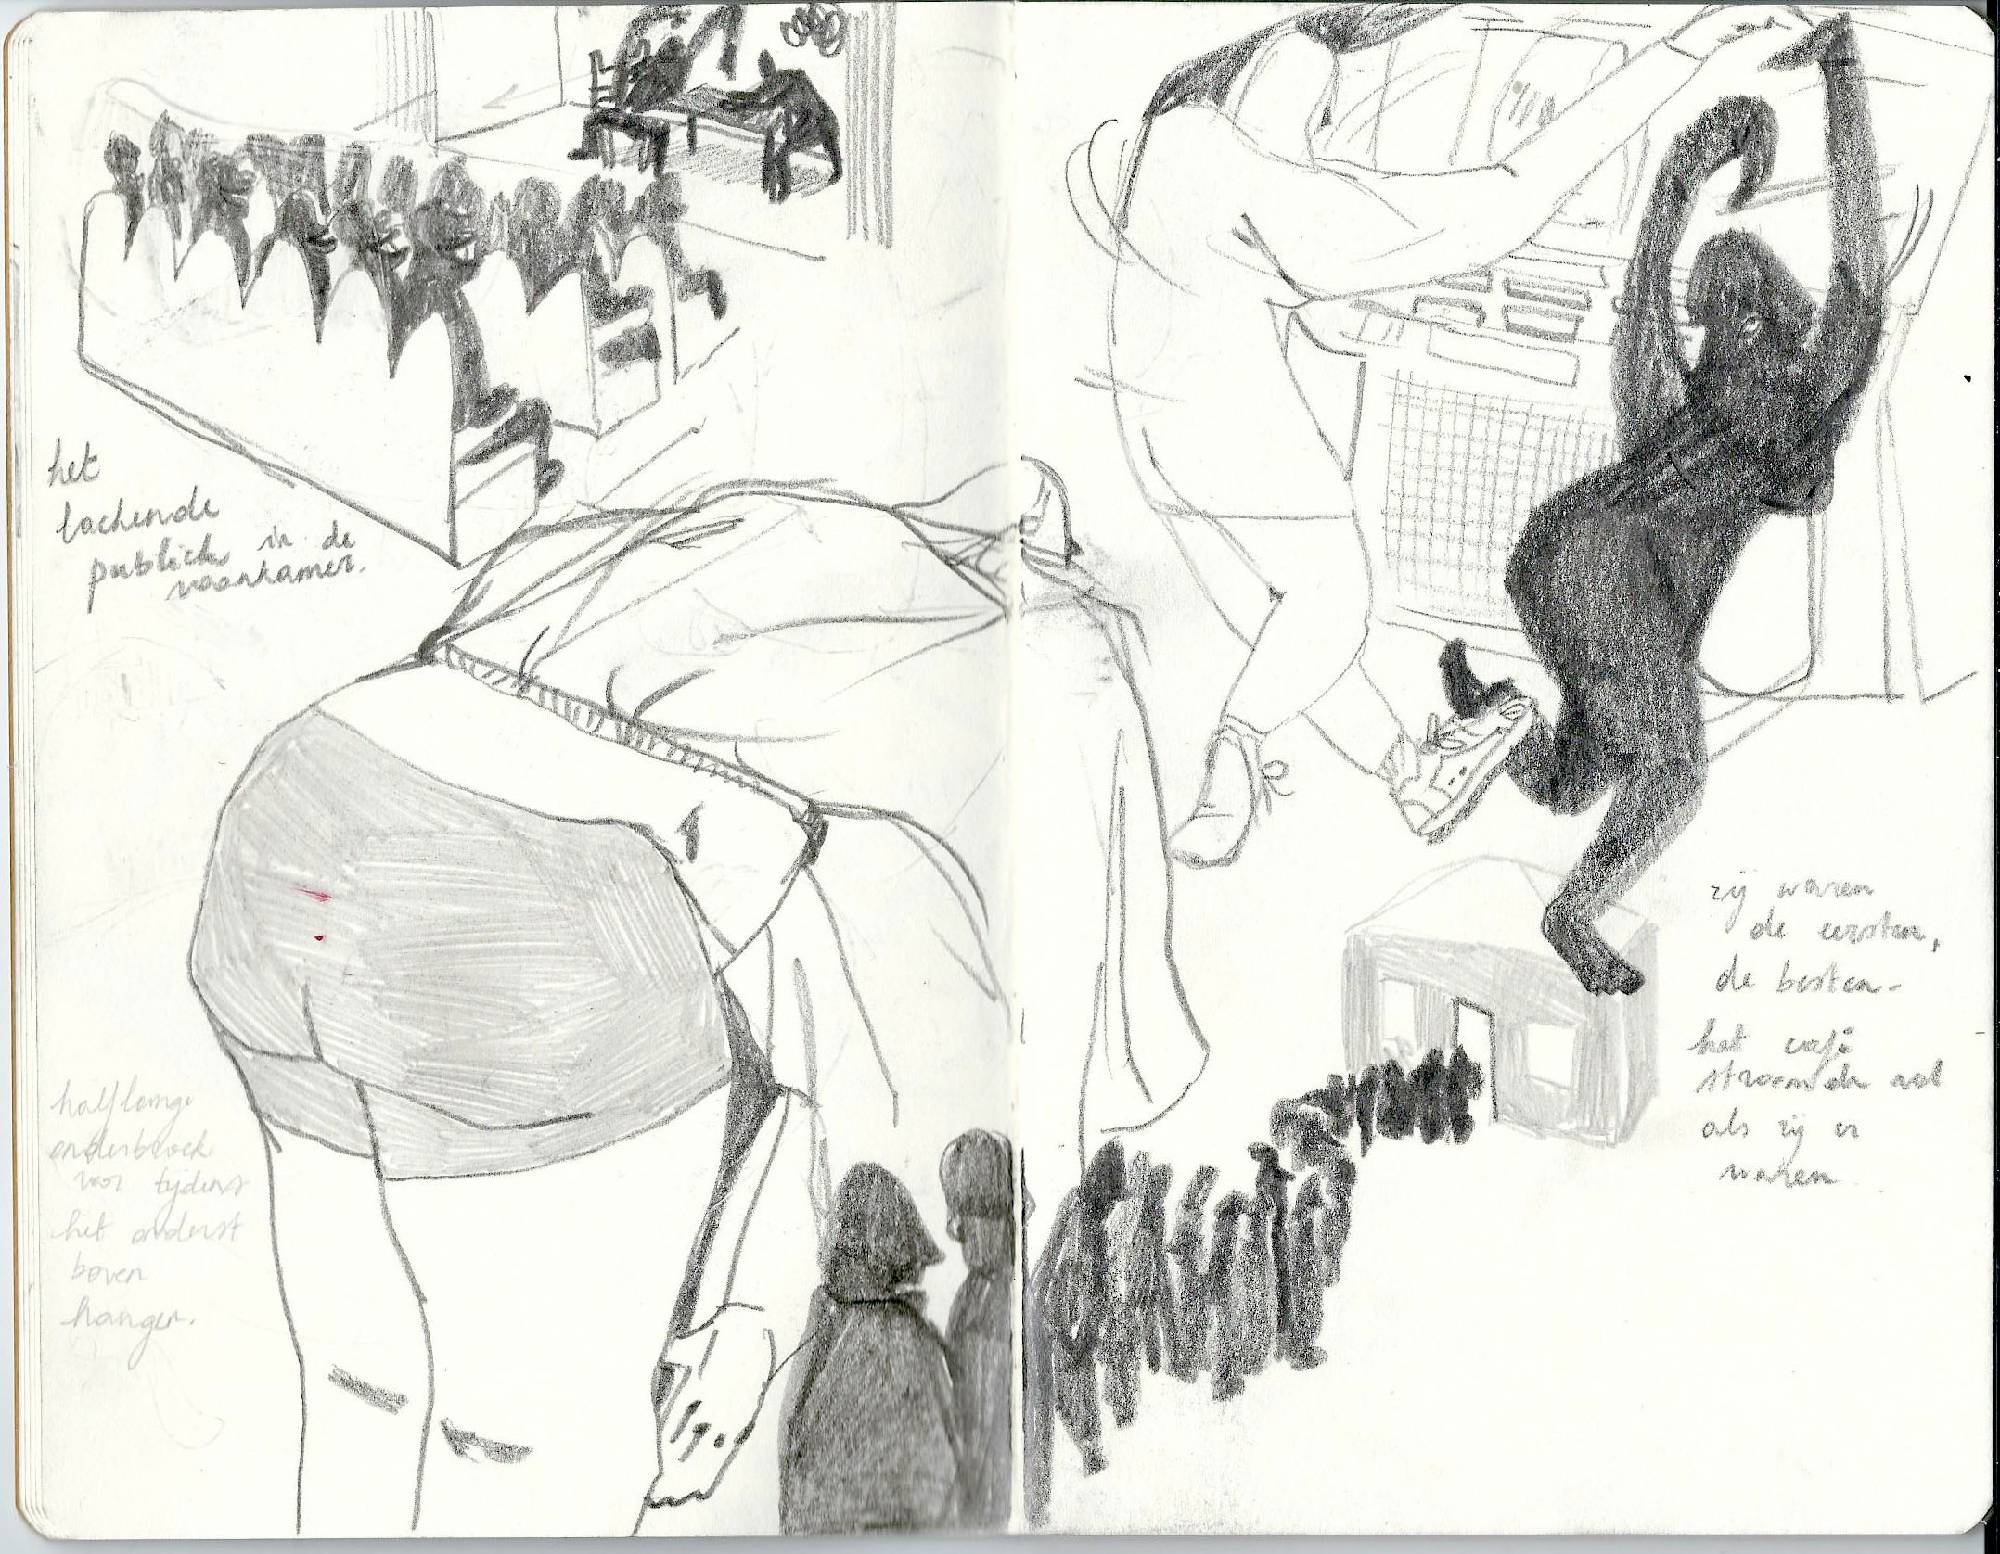 het
lachende
publiek in de
voorkamer.
halflange
onderbroek
voor tijdens
het onderst
boven
hangen.
zij waren
de eersten,
de besten-
het café
stroomde vol
als zij er
waren